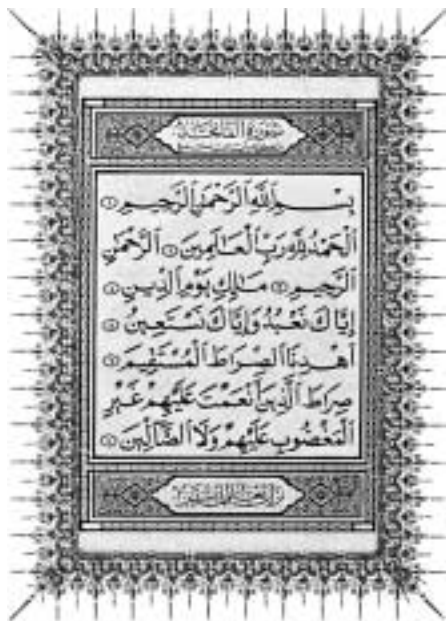 سورة الفاتحة
بِسْمِ اللَّهِ الرَّحْمَٰنِ الرَّحِيمِ ١
الْحَمْدُ لِلَّهِ رَبِّ الْعَالَمِينَ ٢ الرَّحْمَٰنِ
الرَّحِيمِ ٣ مَالِكِ يَوْمِ الدِّينِ ٤
إِيَّاكَ نَعْبُدُ وَإِيَّاكَ نَسْتَعِينُ ٥
اهْدِنَا الصِّرَاطَ الْمُسْتَقِيمَ ٦
صِرَاطَ الَّذِينَ أَنْعَمْتَ عَلَيْهِمْ غَيْرِ
الْمَغْضُوبِ عَلَيْهِمْ وَلَا الضَّالِّينَ ٧